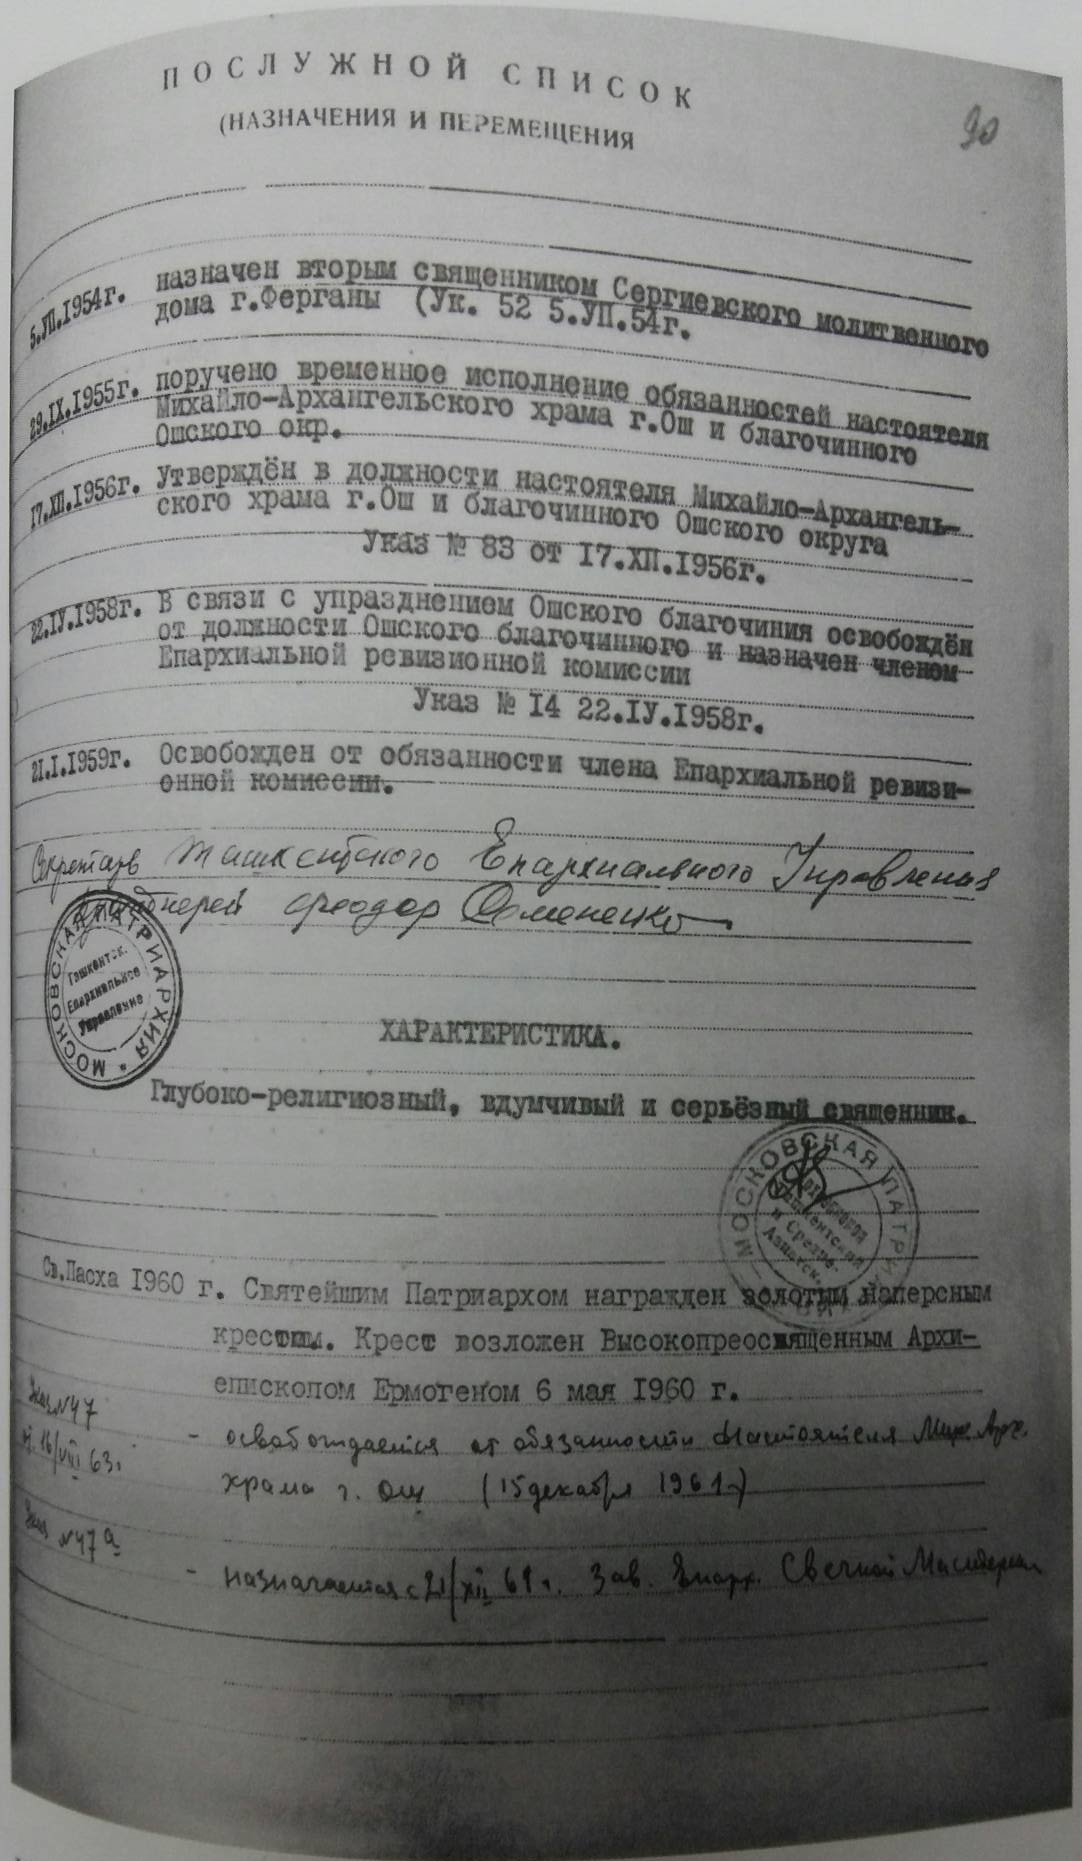 ПОСЛУЖНОЙ СПИСОК
(НАЗНАЧЕНИЯ И ПЕРЕМЕЩЕНИЯ
90
5.УП.1954г. назначен вторым священником Сергиевского молитвенного
дома г.Ферганы (Ук. 52 5.УП.54г.
29.IX.1955г. поручено временное исполнение обязанностей настоятеля
Михайло-Архангельского храма г.Ош и благочинного
Ошского окр.
17.ХП.1956г. Утверждён в должности настоятеля Михайло-Архангель-
ского храма г.Ош и благочинного Ошского округа
Указ № 83 от 17.ХП.1956г.
22.IУ.1958г. В связи с упразднением Ошского благочиния освобождён
от должности Ошского благочинного и назначен членом
Епархиальной ревизионной комиссии
Указ № 14 22.IУ.1958г.
21.I.1959г. Освобожден от обязанности члена Епархиальной ревизи-
онной комиссии.
Секретарь Ташкентского Епархиального Управления
протоиерей Феодор Семененко
МОСКОВСКАЯ ПАТРИАРХИЯ
Ташкентск.
Епархиальное
Управление
ХАРАКТЕРИСТИКА.
Глубоко-религиозный, вдумчивый и серьёзный священник.
МОСКОВСКАЯ ПАТРИ
Ташкентский
и Средне-
Азиатск.
Св.Пасха 1960 г. Святейшим Патриархом награжден золотым наперсным
крестом. Крест возложен Высокопреосвященным Архи-
епископом Ермогеном 6 мая 1960 г.
Указ №47
от 16/VIII 63.
- освобождается от обязанности Настоятеля Мих. Арх.
храма г. Ош (15 декабря 1961г)
Указ №47а
- назначается с 21/XII 61г. Зав. Епарх. Свечной Мастерской